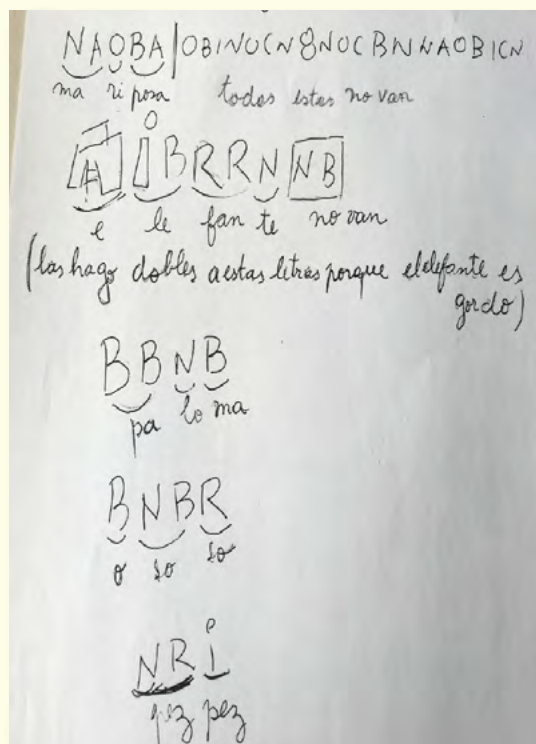 NAOBA|OBINUCN8NOCBNNAOBICN
ma ri posa todas estas no van
AIBRRN NB
e le fan te no van
(las hago dobles a estas letras porque el elefante es
gordo)
BBNB
pa lo ma
BNBR
o so so
NRI
pez pez